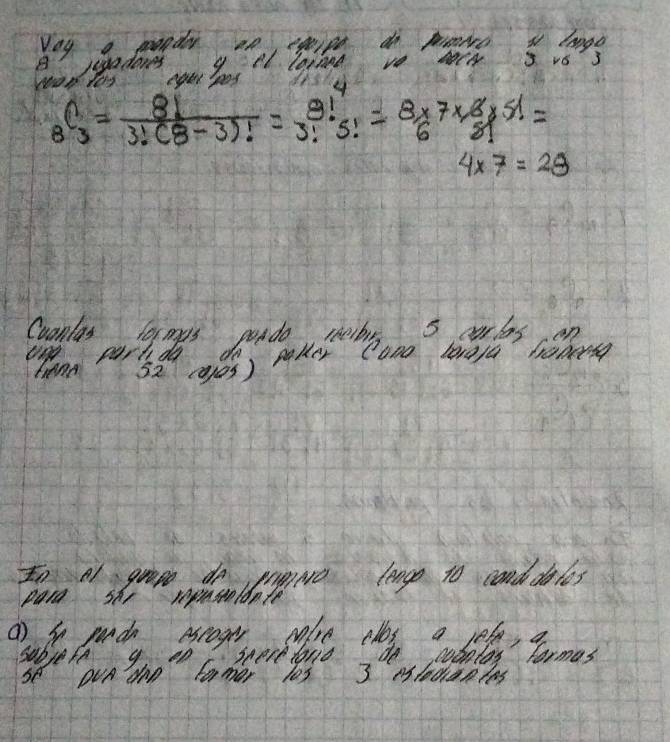 Voy a mandar un equipo de primero si tengo
8 jugadores y el torneo va hacer 3 vs 3
cuantos equipos
8C3 = 8! / 3!(8-3)! = 8! / 3! 5! = 8x7x6x5! / 6 5! =
4
4x7 = 28
Cuantas formas puedo recibir 5 cartas en
una partida de poker (una baraja francesa
tiene 52 cajas)
En el grupo de primero tengo 10 candidatos
para ser representante
a) Se puede escoger entre ellos a jefe, a
subjefe y un secretario de cuantas formas
se puedan formar los 3 estudiantes